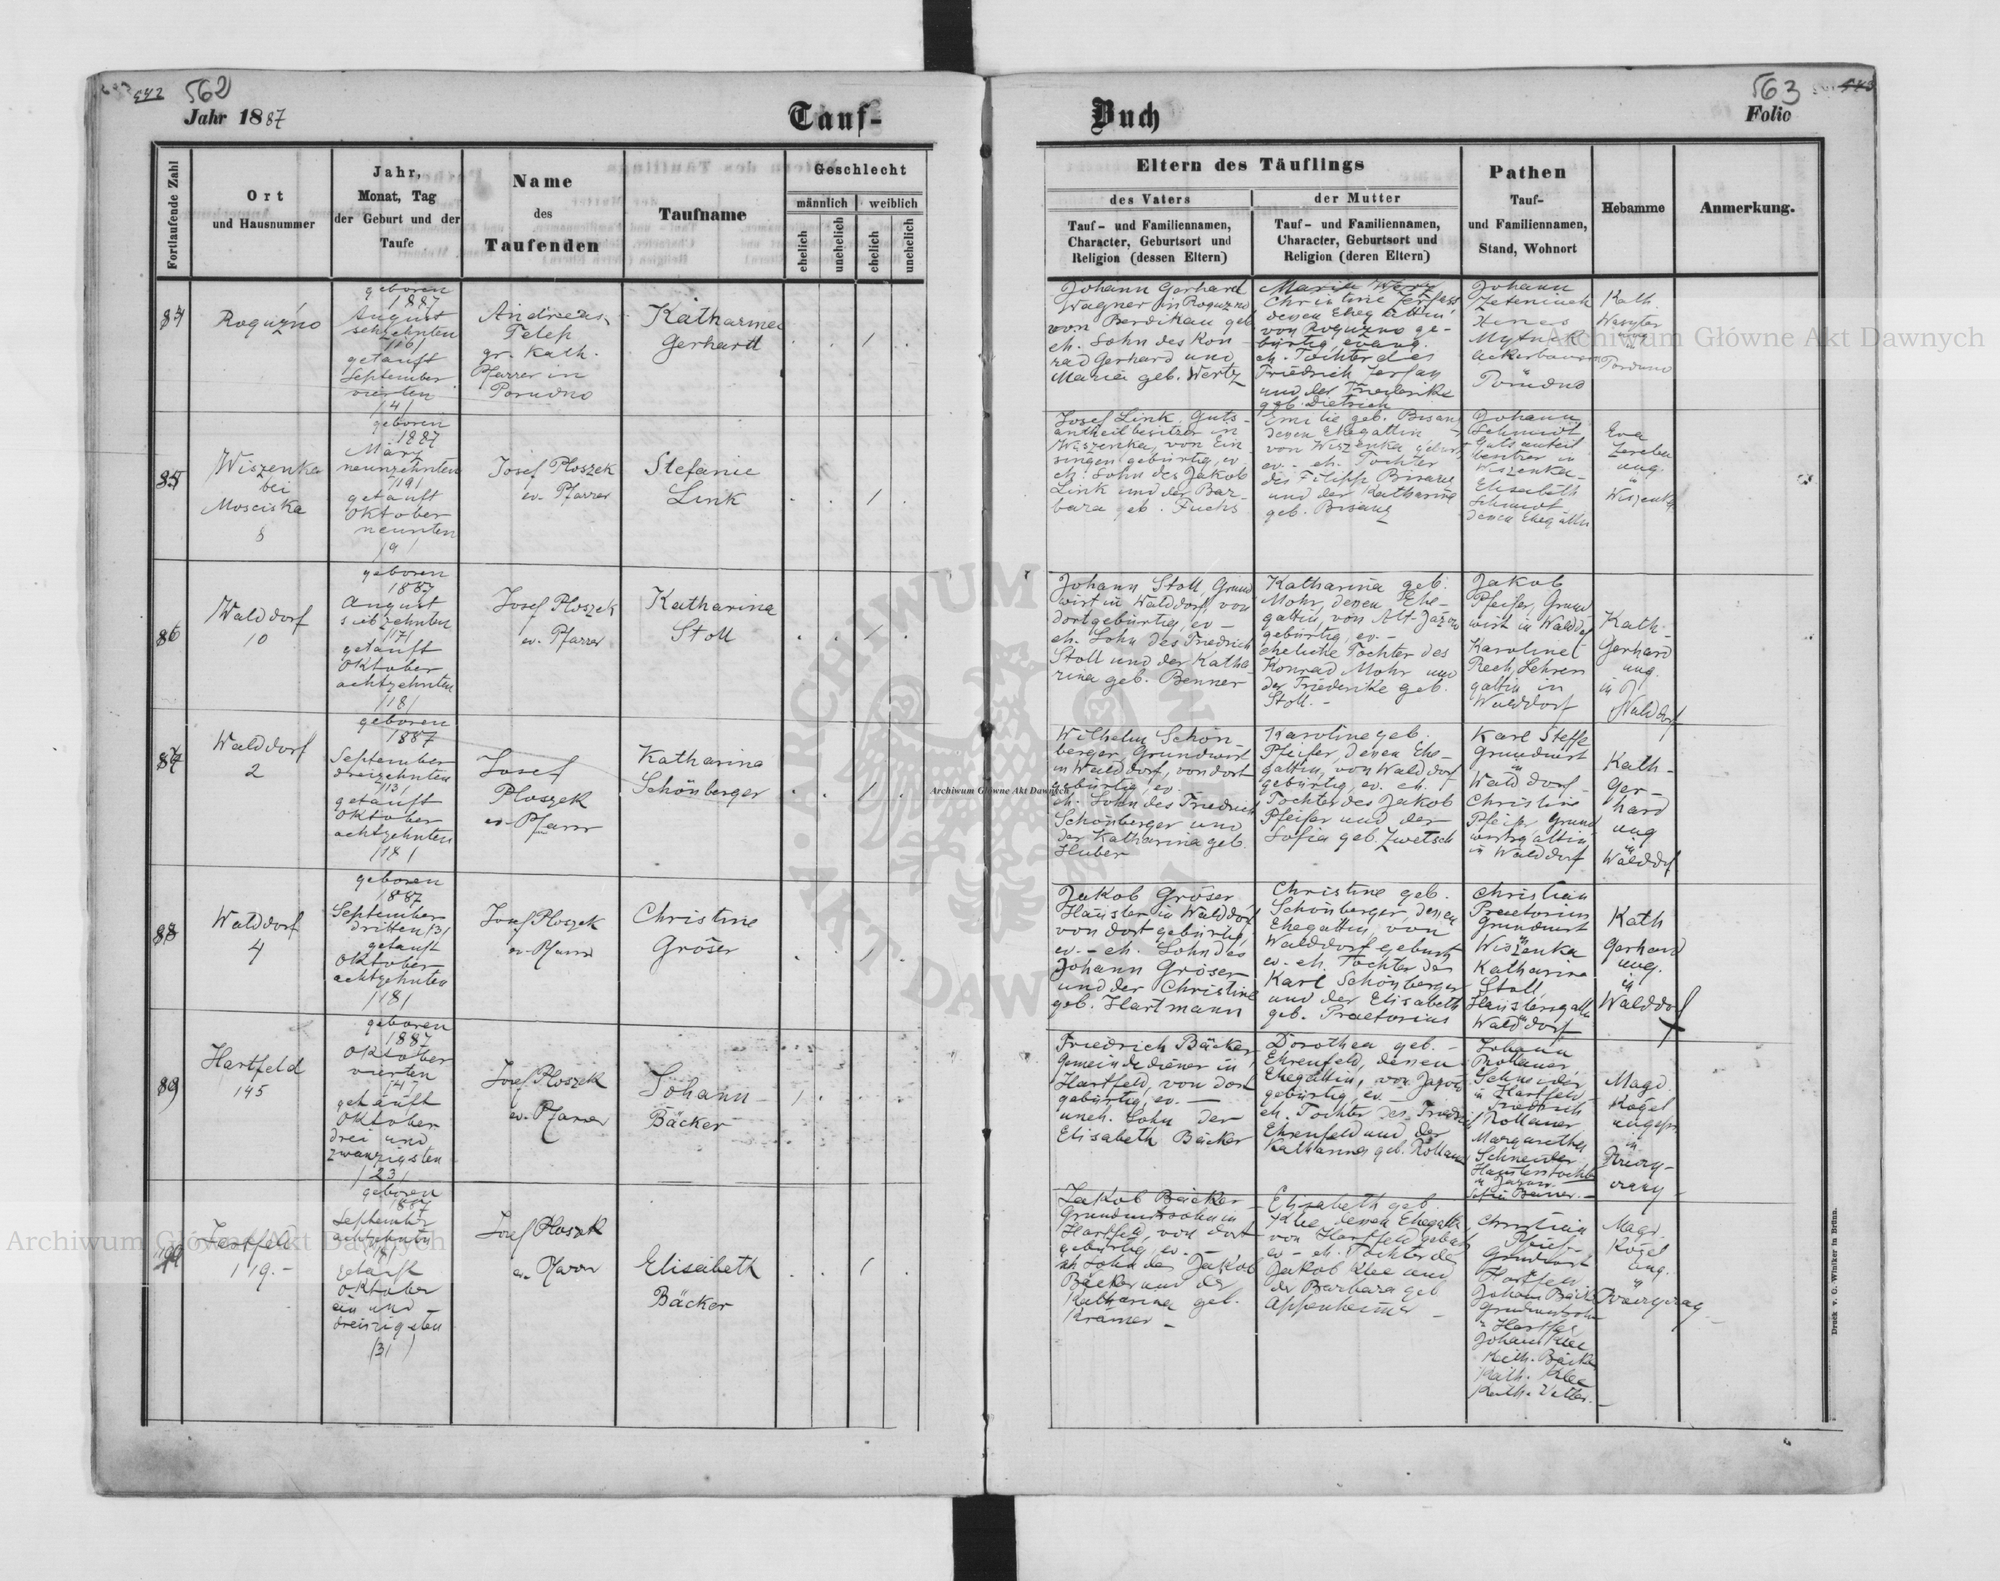 562
Jahr 1887
Tauf-
Buch
563
Folio
Fortlaufende Zahl
Ort
und Hausnummer
Jahr,
Monat, Tag
der Geburt und der
Taufe
Name
des
Taufenden
Taufname
Geschlecht
männlich
weiblich
ehelich
unehelich
ehelich
unehelich
Eltern des Täuflings
des Vaters
der Mutter
Tauf- und Familiennamen,
Character, Geburtsort und
Religion (dessen Eltern)
Tauf- und Familiennamen,
Character, Geburtsort und
Religion (deren Eltern)
Pathen
Tauf-
und Familiennamen,
Stand, Wohnort
Hebamme
Anmerkung.
84
Roguźno
geboren
1887
August
sechzehnten
/16/
getauft
September
vierten
/4/
Andreas
Teleh
gr. Kath.
Pfarrer in
Porudno
Katharina
Gerhard
1
Johann Gerhard
Wagner in Roguzno
von Berdikau geb
eh. Sohn des Kon-
rad Gerhard und
Maria geb. Wertz
Christine
deren Ehegattin
von Roguzno ge-
bürtig, evang.
eh. Tochter des
Friedrich
und der Friederike
geb. Dietrich
Johann
Ackerbauern
in
Porudno
Kath.
in
Porudno
85
Wiszenka
bei
Mosciska
8
geboren
1887
März
neunzehnten
/19/
getauft
Oktober
neunten
/9/
Josef Ploszek
ev. Pfarrer
Stefanie
Link
1
Josef Link, Guts-
antheilbesitzer in
Wiszenka, von Ein-
singen gebürtig, ev.
eh. Sohn des Jakob
Link und der Bar-
bara geb. Fuchs
Emilie geb. Bisanz
dessen Ehegattin
von Wiszenka gebürt
ev. - eh. Tochter
des Filipp Bisanz
und der Katharina
geb. Bisanz
Johann
Schmidt
Gutsanteil
besitzer in
Wiszenka
Elisabeth
Schmidt
dessen Ehegattin
Eva
ung.
in
Wiszenka
86
Walddorf
10
geboren
1887
August
siebzehnten
/17/
getauft
Oktober
achtzehnten
/18/
Josef Ploszek
ev. Pfarrer
Katharina
Stoll
1
Johann Stoll, Grund
wirt in Walddorf, von
dort gebürtig, ev -
eh. Sohn des Friedrich
Stoll und der Katha-
rina geb. Benner
Katharina geb.
Mohr, dessen Ehe-
gattin, von Alt-Jazow
gebürtig, ev. -
eheliche Tochter des
Konrad Mohr und
der Friederike geb.
Stoll. -
Jakob
Pfeifer, Grund
wirt in Walddorf
Karoline
Rech, Lehrers
gattin in
Walddorf
Kath.
Gerhard
ung.
in
Walddorf
87
Walddorf
2
geboren
1887
September
dreizehnten
/13/
getauft
Oktober
achtzehnten
/18/
Josef
Ploszek
ev. Pfarrer
Katharina
Schönberger
1
Wilhelm Schön-
berger, Grundwirt
in Walddorf, von dort
gebürtig, ev.
eh. Sohn des Friedrich
Schönberger und
der Katharina geb.
Huber
Karoline geb.
Pfeifer, dessen Ehe-
gattin, von Walddorf
gebürtig, ev. eh.
Tochter des Jakob
Pfeifer und der
Sofia geb. Zwetsch
Karl Steffe
Grundwirt
in
Walddorf
Christine
Pfeifer Grund
wirtsgattin
in Walddorf
Kath-
Ger-
hard
ung
in
Walddf
88
Walddorf
4
geboren
1887
September
dritten /3/
getauft
Oktober
achtzehnten
/18/
Josef Ploszek
ev. Pfarrer
Christine
Gröser
1
Jakob Gröser
Häusler in Walddorf
von dort gebürtig,
ev. - eh. Sohn des
Johann Gröser
und der Christine
geb. Hartmann
Christine geb.
Schönberger, dessen
Ehegattin, von
Walddorf gebürt
ev. eh. Tochter des
Karl Schönberger
und der Elisabeth
geb. Praetorius
Christian
Praetorius
Grundwirt
in
Wiszenka
Katharina
Stoll
Häuslersgattin
Walddorf
Kath
Gerhard
ung.
in
Walddorf
89
Hartfeld
145
geboren
1887
Oktober
vierten
/4/
getauft
Oktober
drei und
zwanzigsten
/23/
Josef Ploszek
ev. Pfarrer
Johann
Bäcker
1
Friedrich Bäcker
Gemeindediener in
Hartfeld, von dort
gebürtig, ev. -
uneh. Sohn der
Elisabeth Bäcker
Dorothea geb. -
Ehrenfeld, dessen
Ehegattin, von Jazow
gebürtig, ev. -
eh. Tochter des Friedrich
Ehrenfeld und der
Katharina geb. Rollauer
Johann
Rollauer
Schneider
in Hartfeld
Friedrich
Rollauer
Margaretha
Schneider
Häuslerstochter
in Jazow
Magd.
Kogel
ungepr
in
90
Hartfeld
119.-
geboren
1887
September
achtzehnten
/18/
getauft
Oktober
ein und
dreizigsten
/31/
Josef Ploszek
ev. Pfarrer
Elisabeth
Bäcker
1
Jakob Bäcker
Grundwirtssohn in
Hartfeld, von dort
gebürtig, ev. -
eh. Sohn des Jakob
Bäcker und der
Katharina geb.
Kramer -
Elisabeth geb.
Klee dessen Ehegattin
von Hartfeld gebürt
ev - eh. Tochter des
Jakob Klee und
der Barbara geb
Appenheimer -
Christian
Grundwirt
Hartfeld
Johann Bäcker
Grundwirtssohn
in Hartfeld
Johann Klee
Kath. Bäcker
Kath. Klee
Kath. Vetter. -
Magd.
Kogel
ung.
in
Druck v. C. Winiker in Brünn.
Archiwum Główne Akt Dawnych
Archiwum Główne Akt Dawnych
Archiwum Główne Akt Dawnych
ARCHIWUM GŁÓWNE AKT DAWNYCH